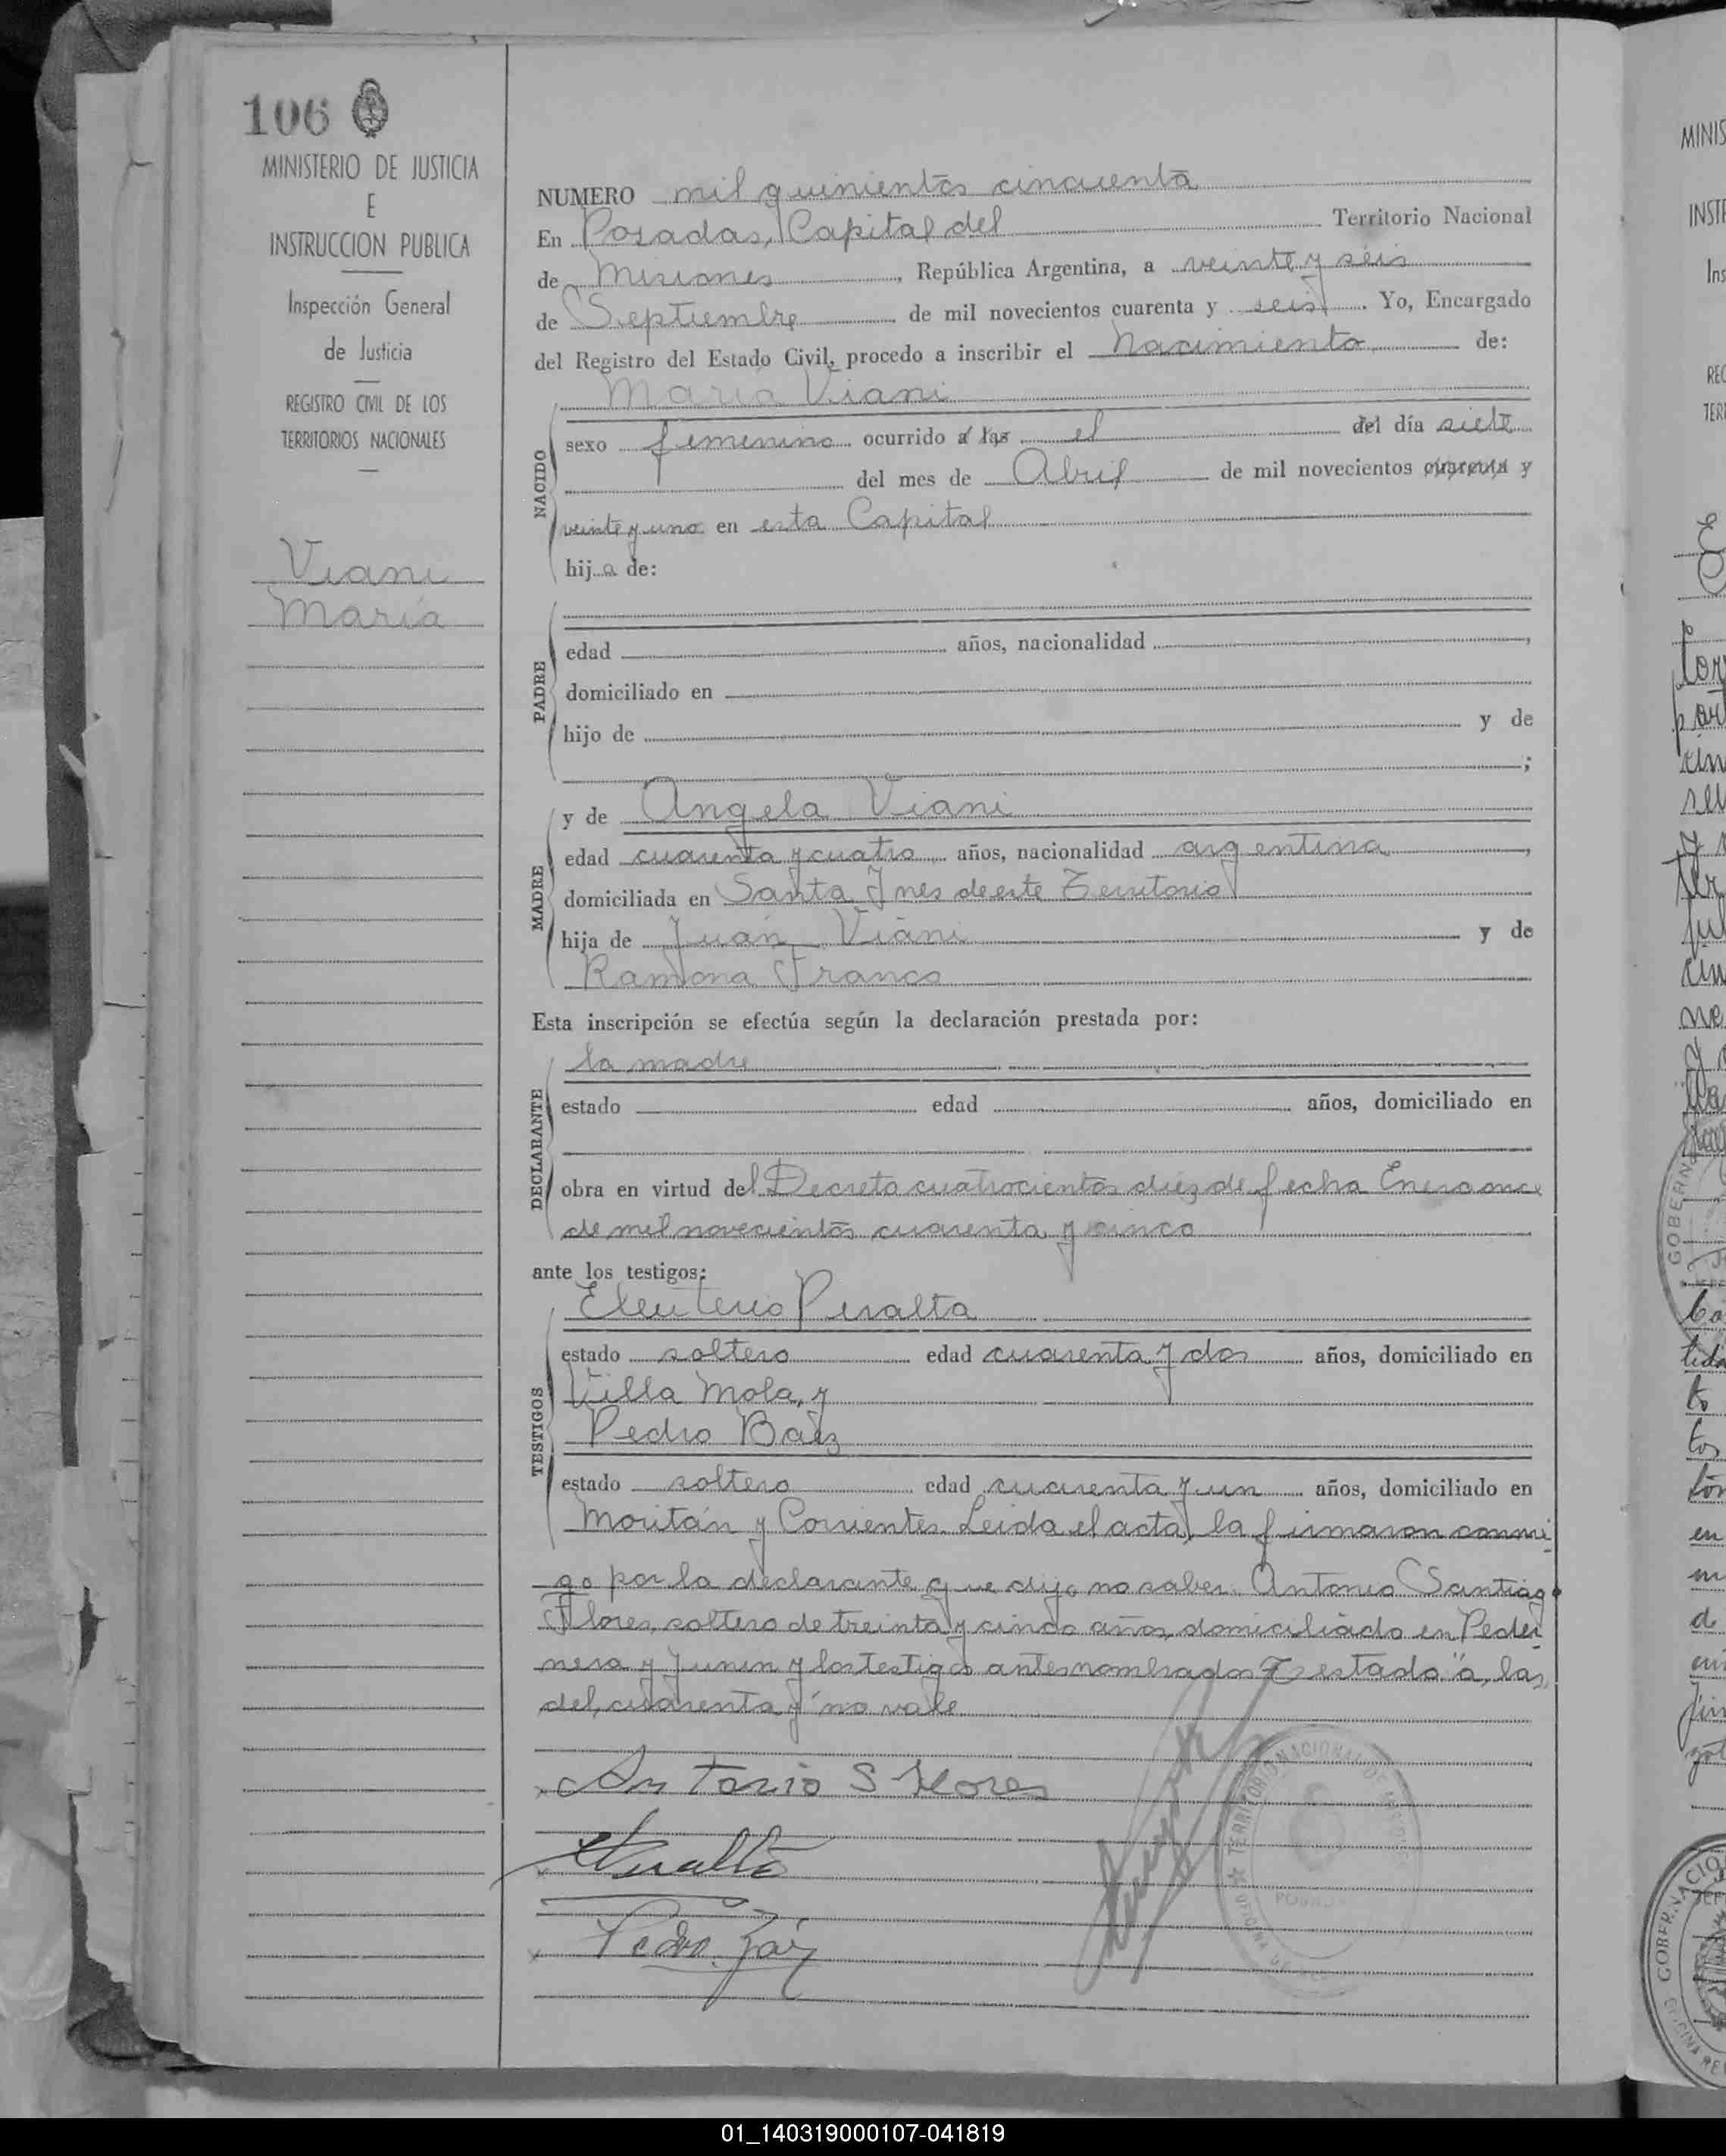 106
MINISTERIO DE JUSTICIA
E
INSTRUCCION PUBLICA
Inspección General
de Justicia
REGISTRO CIVIL DE LOS
TERRITORIOS NACIONALES
Viani
María
NUMERO mil quinientos cincuenta
En Posadas, Capital del Territorio Nacional
de Misiones, República Argentina, a veinte y seis
de Septiembre de mil novecientos cuarenta y seis. Yo, Encargado
del Registro del Estado Civil, procedo a inscribir el Nacimiento de:
María Viani
NACIDO
sexo femenino ocurrido a las el del día siete
del mes de Abril de mil novecientos cuarenta y
veinte y uno en esta Capital
hija de:
PADRE
edad años, nacionalidad ,
domiciliado en
hijo de y de
;
MADRE
y de Angela Viani
edad cuarenta y cuatro años, nacionalidad argentina,
domiciliada en Santa Ines de este Territorio
hija de Juan Viani y de
Ramona Franco
Esta inscripción se efectúa según la declaración prestada por:
DECLARANTE
la madre
estado edad años, domiciliado en
obra en virtud del Decreto cuatrocientos diez de fecha Enero once
de mil novecientos cuarenta y cinco
ante los testigos:
TESTIGOS
Eleuterio Peralta
estado soltero edad cuarenta y dos años, domiciliado en
Villa Mola, y
Pedro Baez
estado soltero edad cuarenta y un años, domiciliado en
Moritán y Corrientes. Leida el acta, la firmaron conmi
go por la declarante que dijo no saber. Antonio Santiago
Flores, soltero de treinta y cinco años, domiciliado en Peder
nera y Junin y los testigos antes nombrados Testado "a las,
del, cuarenta y" no vale
Antonio S Flores
EPeralta
Pedro Báez
TERRITORIO NACIONAL DE MISIONES
POSADAS
01_140319000107-041819